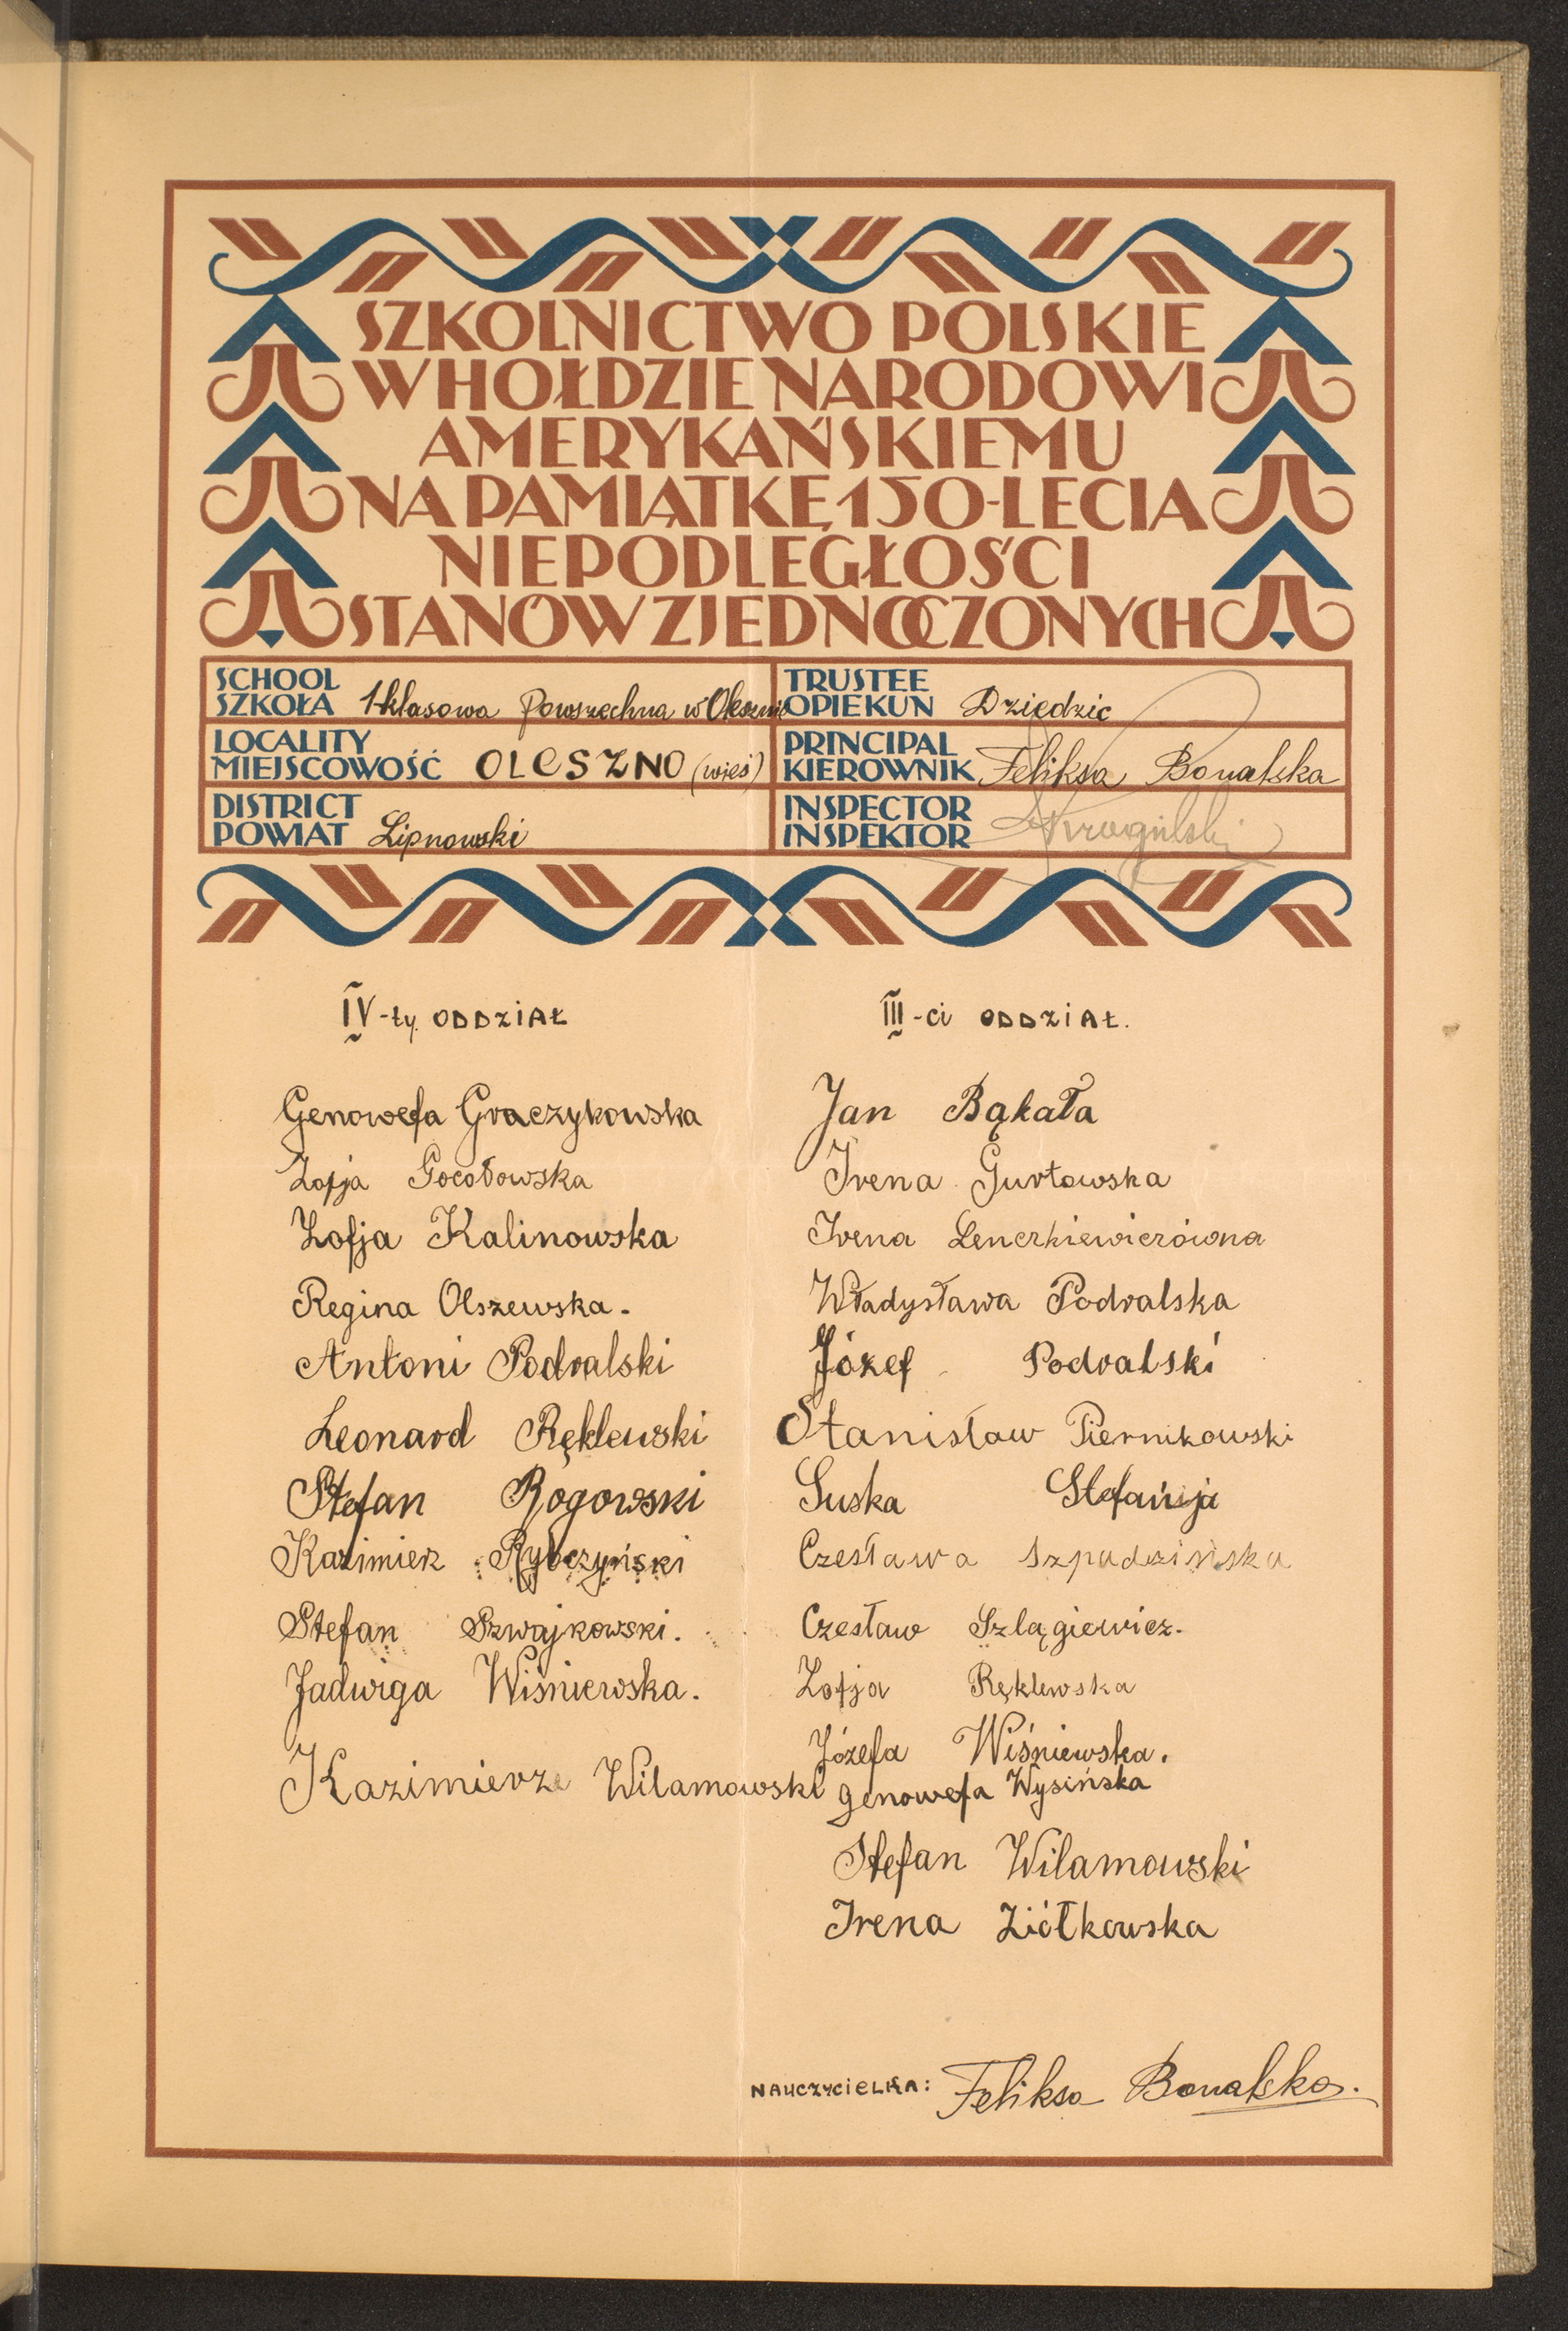 SZKOLNICTWO POLSKIE
W HOŁDZIE NARODOWI
AMERYKAŃSKIEMU
NA PAMIĄTKĘ 150-LECIA
NIEPODLEGŁOŚCI
STANÓW ZJEDNOCZONYCH
SCHOOL
SZKOŁA 1klasowa Powszechna w Olesznie
LOCALITY
MIEJSCOWOŚĆ OLESZNO (wieś)
DISTRICT
POWIAT Lipnowski
TRUSTEE
OPIEKUN Dziedzic
PRINCIPAL
KIEROWNIK Feliksa Bonalska
INSPECTOR
INSPEKTOR
IV-ty ODDZIAŁ
Genowefa Graczykowska
Zofja Gocołowska
Zofja Kalinowska
Regina Olszewska.
Antoni Podralski
Leonard Ręklewski
Stefan Rogowski
Kazimierz Rybczyński
Stefan Szwajkowski.
Jadwiga Wiśniewska.
Kazimierz Wilamowski
III-ci ODDZIAŁ.
Jan Bąkała
Irena Gurtowska
Irena Lenczkiewiczówna
Władysława Podralska
Józef Podralski
Stanisław Piernikowski
Suska Stefańja
Czesława Szpadzińska
Czesław Szlągiewicz.
Zofja Ręklewska
Józefa Wiśniewska.
Genowefa Wysińska
Stefan Wilamowski
Irena Ziółkowska
NAUCZYCIELKA: Feliksa Bonalska.